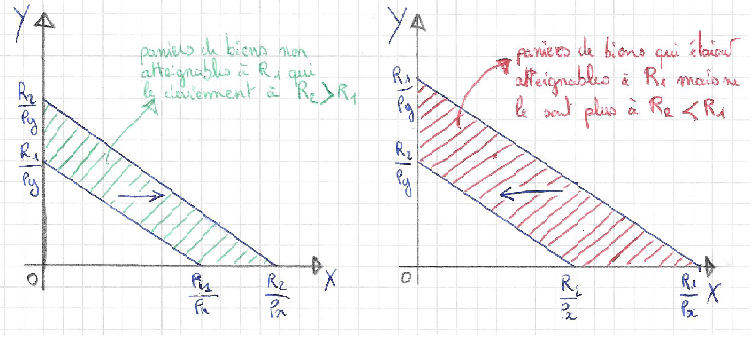 Y
paniers de biens non
atteignables à R1 qui
le deviennent à R2 > R1
R2/Py
R1/Py
0
R1/Px
R2/Px
X
Y
paniers de biens qui étaient
atteignables à R1 mais ne
le sont plus à R2 < R1
R1/Py
R2/Py
0
R2/Px
R1/Px
X